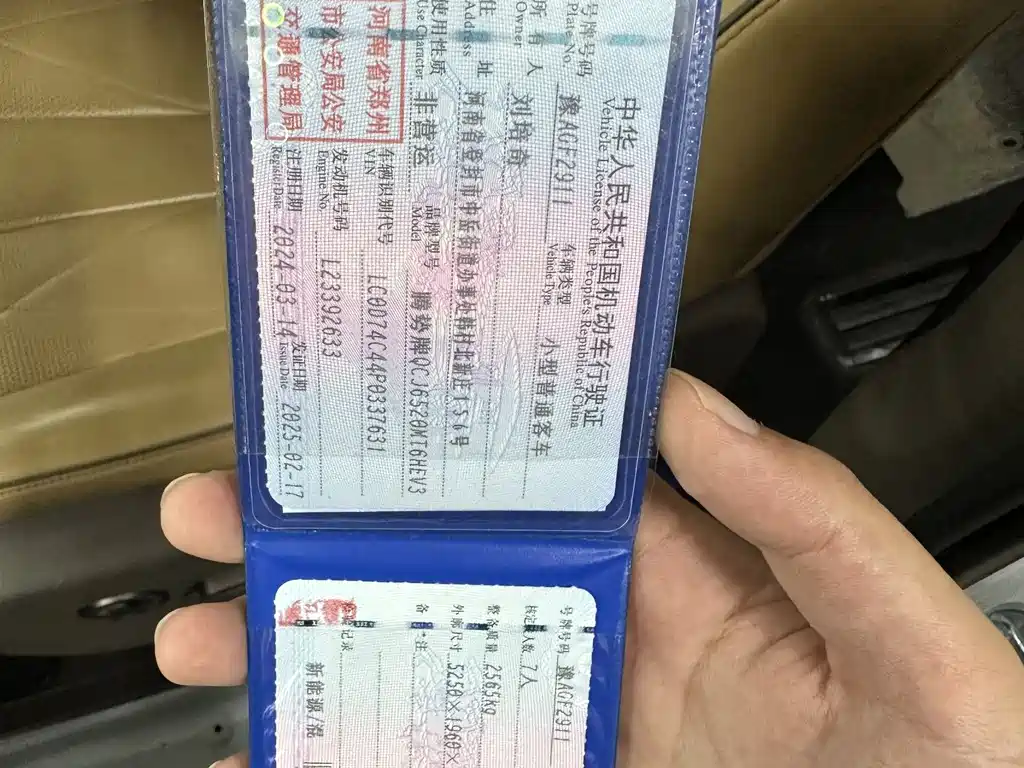 中华人民共和国机动车行驶证
Vehicle License of the People's Republic of China
号牌号码 豫AGF2911 车辆类型 小型普通客车
Plate No. Vehicle Type
所有人 刘培奇
Owner
住址 河南省登封市中岳街道办事处韩村北新庄156号
Address
使用性质 非营运 品牌型号 腾势牌QCJ6520MT6HEV3
Use Character Model
河南省郑州
市公安局公安
交通管理局
车辆识别代号 LC0D74C44P0337631
VIN
发动机号码 L23392633
Engine No.
注册日期 2024-03-14 发证日期 2025-02-17
Register Date Issue Date
号牌号码 豫AGF2911
核定载人数 7人
整备质量 2565kg
外廓尺寸 5250×1960×
备注
检验记录
新能源/混